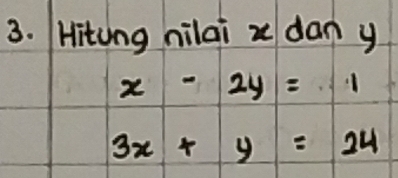 3. Hitung nilai x dan y
x - 2y = 1
3x + y = 24